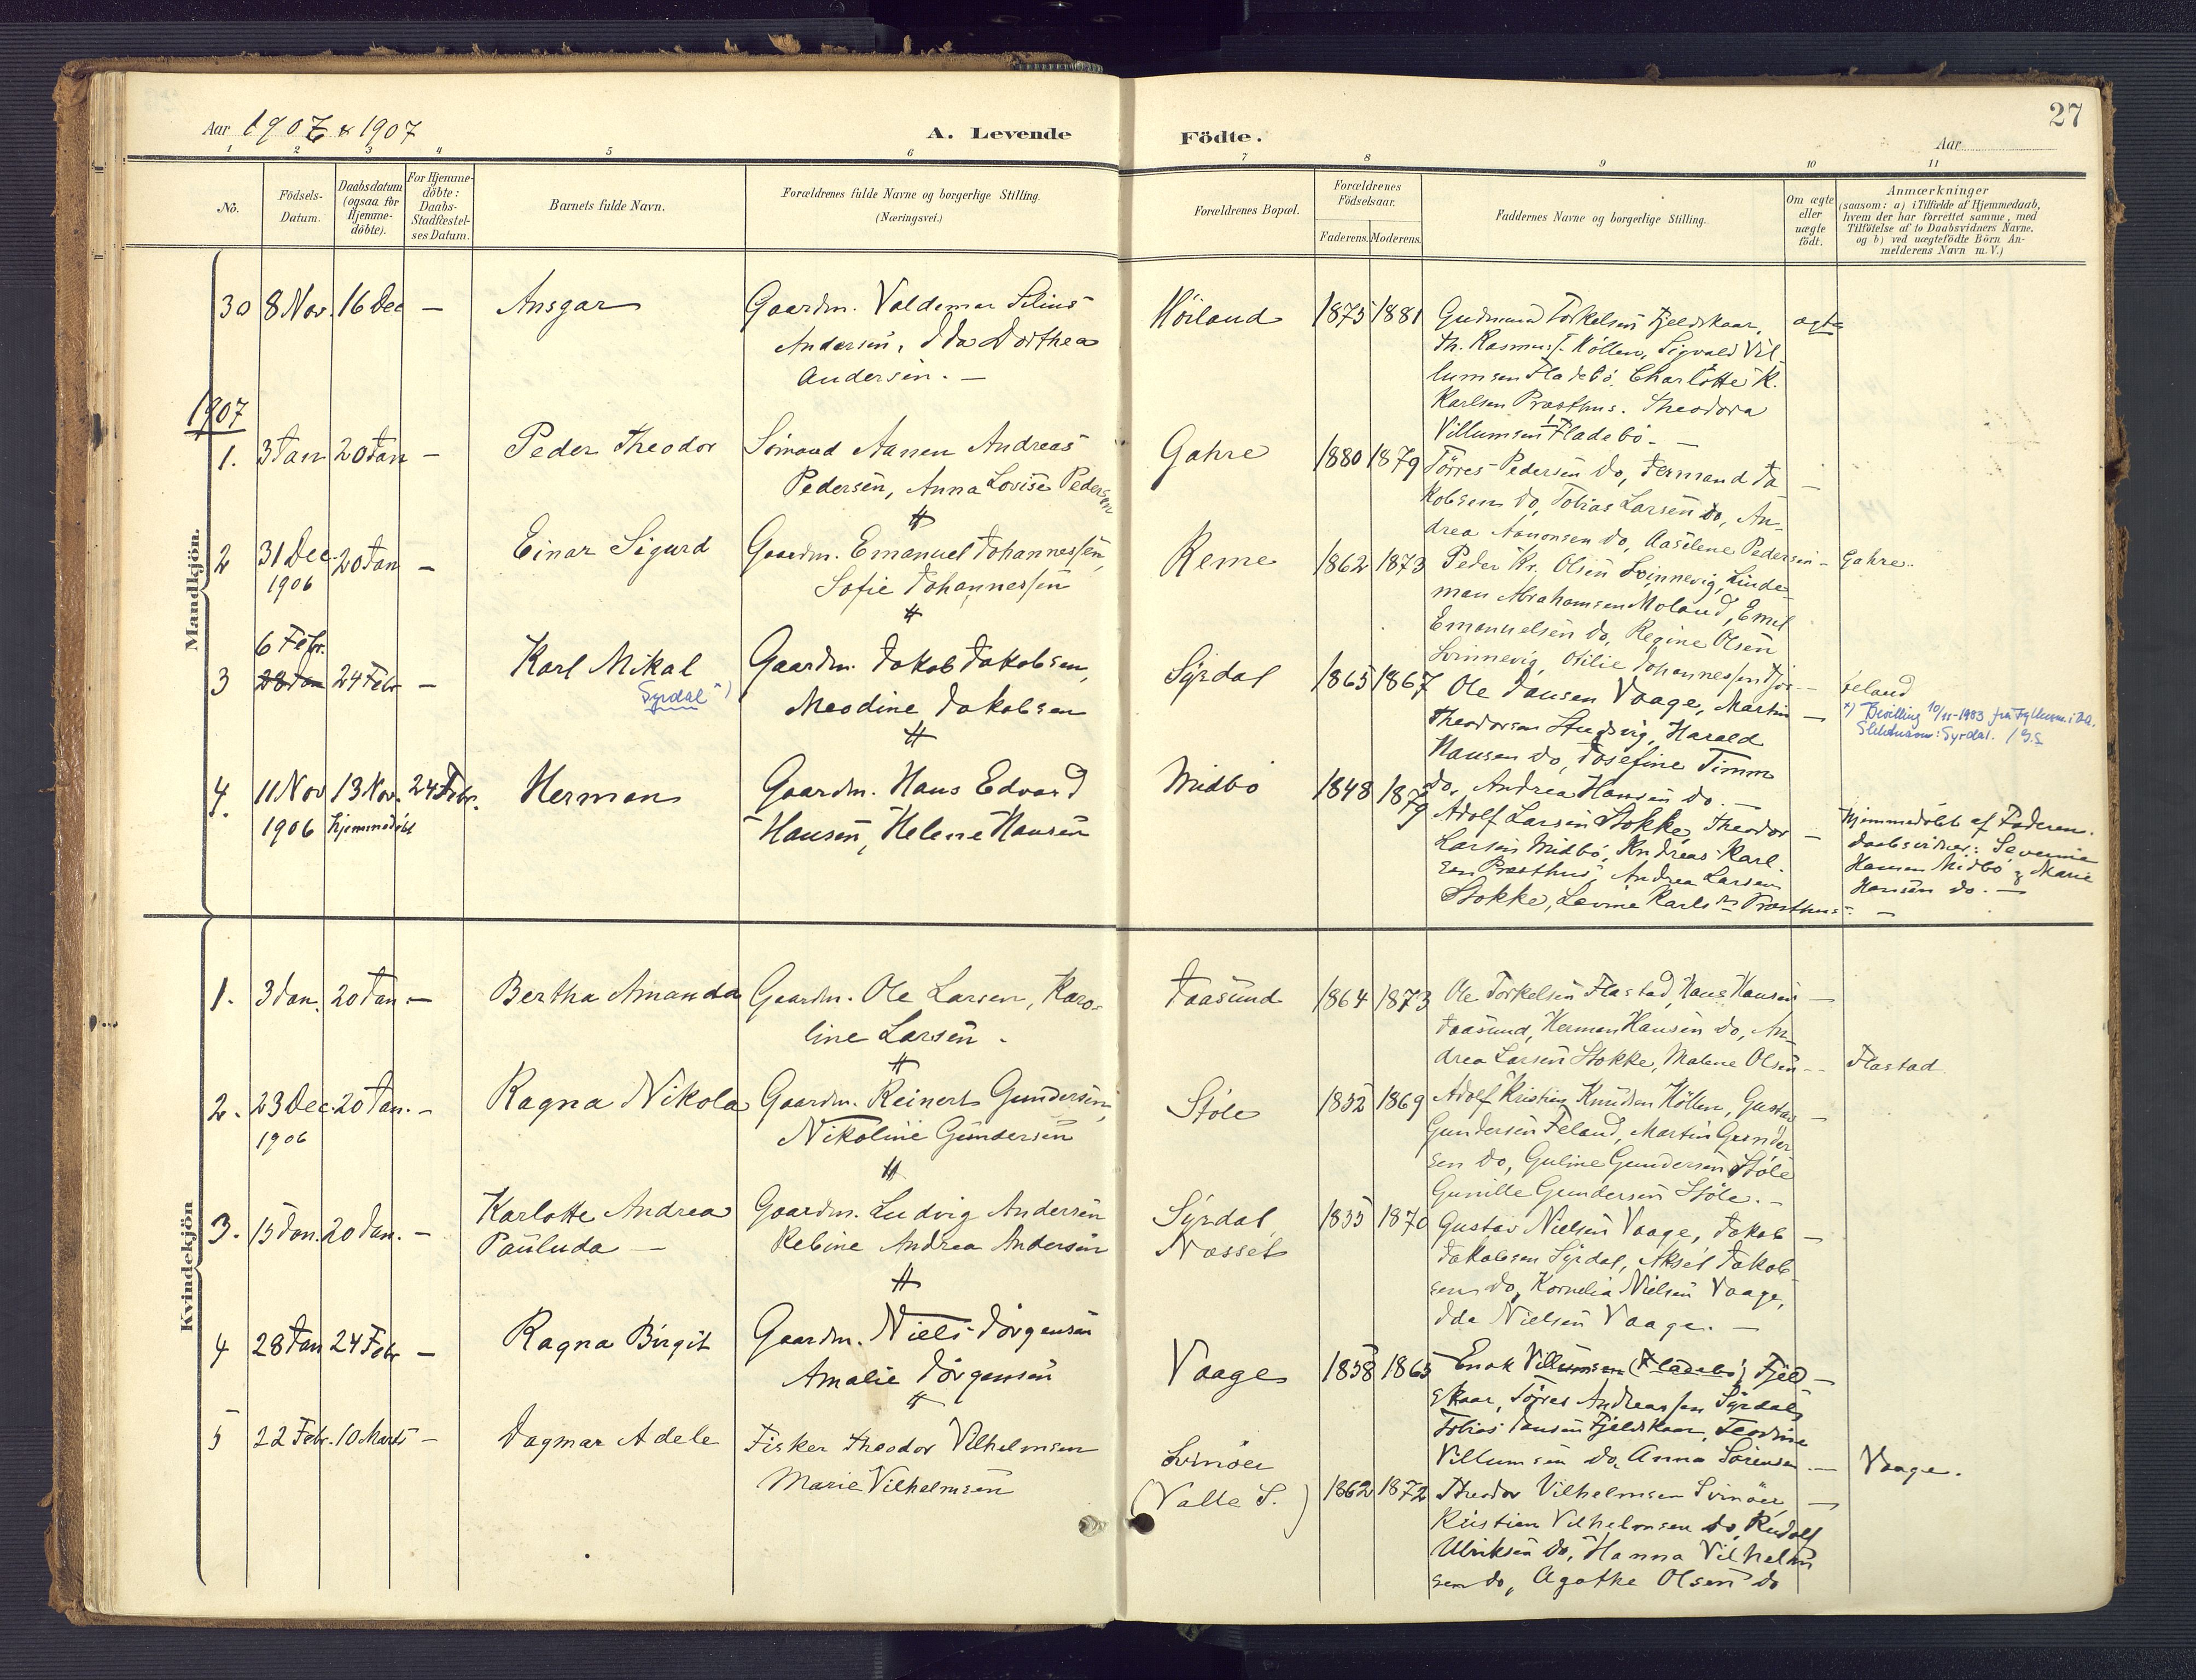 27
Aar 1906 & 1907
A. Levende Födte.
Aar
1 2 3 4 5 6 7 8 9 10 11
No.
Födsels-
Datum.
Daabsdatum
(ogsaa for
Hjemme-
döbte).
For Hjemme-
döbte:
Daabs-
Stadfæstel-
ses Datum.
Barnets fulde Navn.
Forældrenes fulde Navne og borgerlige Stilling.
(Næringsvei.)
Forældrenes Bopæl.
Forældrenes
Födselsaar.
Faderens. Moderens.
Faddernes Navne og borgerlige Stilling.
Om ægte
eller
uægte
födt.
Anmærkninger
(saasom: a) i Tilfælde af Hjemmedaab,
hvem der har forrettet samme, med
Tilföielse af to Daabsvidners Navne.
og b) ved uægtefödte Börn An-
melderens Navn m.V.)
Mandkjön.
30 8 Nov. 16 Dec — Ansgar
Gaardm. Valdemar Silius
Andersen, Ida Dorthea
Andersen. —
Höiland 1875 1881
Gudmund Torkelsen Fjeldskaar,
Th. Rasmuss. Köllen, Sigvald Vil-
lumsen Fladebö, Charlotte K.
Karlsen Præsthus. Theodora
Villumsen Fladebö. —
ægte
1907
1. 3 Jan 20 Jan — Peder Theodor
Sömand Aanen Andreas
Pedersen, Anna Lovise Pedersen
Gahre 1880 1879
Törres Pedersen do, Fermand Ja-
kobsen do, Tobias Larsen do, An-
drea Aanonsen do, Aaselene Pedersen — Gahre.
2 31 Dec. 20 Jan —
1906
Einar Sigurd
Gaardm. Emanuel Johannessen,
Sofie Johannessen
Reme 1862 1873
Peder Kr. Olsen Svinnevig, Linde-
man Abrahamsen Moland, Emil
Emanuelsen do, Regine Olsen
Svinnevig, Otilie Johannessen
feland
6 Febr.
3 28 Jan 24 Febr —
Karl Mikal
Syrdal *)
Gaardm. Jakob Jakobsen,
Meodine Jakobsen
Syrdal 1865 1867
Ole Jansen Vaage, Martin —
Theodorsen Studsvig, Harald
Hansen do, Josefine Timm
do, Andrea Hansen do. —
*) Bevilling 10/11-1983 fra Fylkesm. i V.A.
Slektsnavn: Syrdal. / S.S
4. 11 Nov 13 Nov. 24 Febr.
1906 hjemmedöbt
Herman
Gaardm. Hans Edvard
Hansen, Helene Hansen
Midbö 1848 1879
Adolf Larsen Stokke, Theodor —
Larsen Midbö, Andreas Karl-
sen Præsthus, Andrea Larsen
Stokke, Levine Karls. Præsthus. —
Hjemmedöbt af Faderen.
Daabsvidner: Severine
Hansen Midbö & Marie
Hansen do. —
Kvindekjön
1. 3 Jan. 20 Jan — Bertha Amanda
Gaardm. Ole Larsen, Karo-
line Larsen.
Jaasund 1864 1873
Ole Torkelsen Flastad, Hans Hansen —
Jaasund, Herman Hansen do, An-
drea Larsen Stokke, Malene Olsen — Flastad
2. 23 Dec. 20 Jan. —
1906
Ragna Nikola
Gaardm. Reinert Gundersen,
Nikoline Gundersen
Stöle 1852 1869
Adolf Kristian Knudsen Köllen, Gustav —
Gundersen Feland, Martin Gunder-
sen do, Guline Gundersen Stöle
Gunille Gundersen Stöle. —
3. 15 Jan. 20 Jan. —
Karlotte Andrea
Pauluda —
Gaardm. Ludvig Andersen
Rebine Andrea Andersen
Syrdal
Næsset
1855 1870
Gustav Nielsen Vaage, Jakob —
Jakobsen Syrdal, Aksel Jakob-
sen do, Kornelia Nielsen Vaage,
Ida Nielsen Vaage. —
4 28 Jan 24 Febr — Ragna Birgit
Gaardm. Niels Jörgensen
Amalie Jörgensen
Vaage 1858 1865
Enok Villumsen (Fladebö) Fjeld —
skaar, Törres Andreassen Syrdal,
Tobias Jansen Fjeldskaar, Teodine
Villumsen do, Anna Sörensen — Vaage.
5 22 Febr. 10 Marts — Dagmar Adele
Fisker Theodor Vilhelmsen
Marie Vilhelmsen
Svinöen
(Valle S.)
1862 1872
Theodor Vilhelmsen Svinöen, —
Kristian Vilhelmsen do, Rudolf
Ulriksen do, Hanna Vilhelm-
sen do, Agathe Olsen do